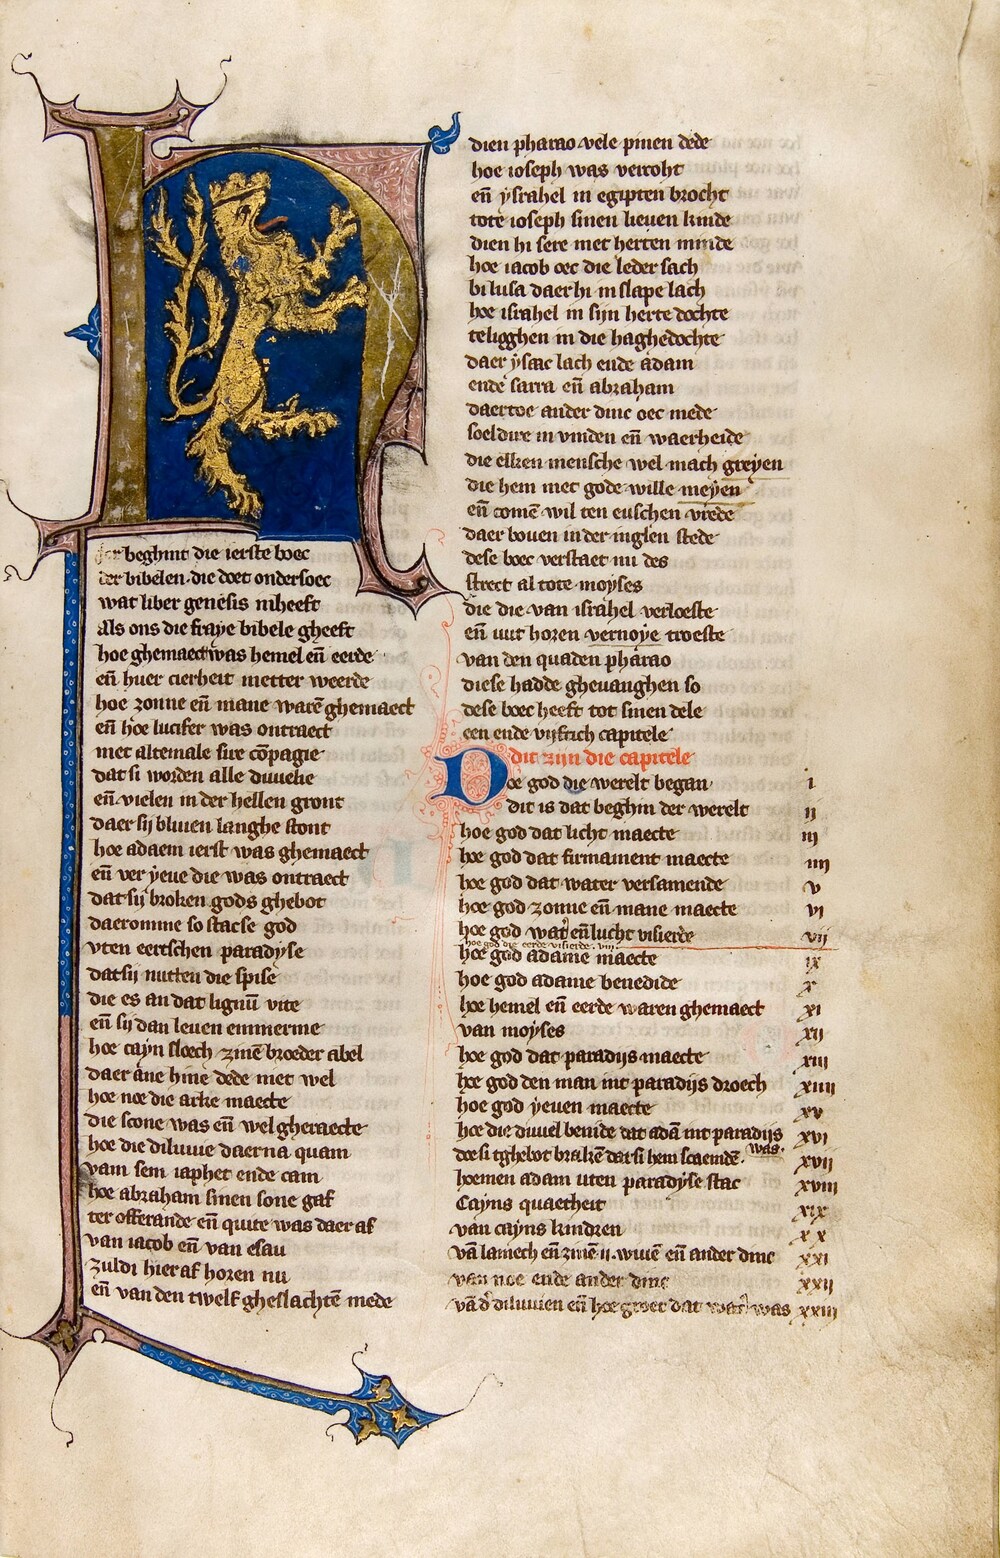 H
ier beghint die ierste boec
der bibelen · die doet ondersoec
wat liber genesis inheeft
Als ons die fraye bibele gheeft
hoe ghemaect was hemel en̄ eerde
en̄ huer cierheit metter weerde
hoe zonne en̄ mane warē ghemaect
en̄ hoe lucifer was ontraect
met altemale sire cōpagie
dat si worden alle duuelie
en̄ vielen in der hellen gront
daer sij bliuen langhe stont
hoe adaem ierst was ghemaect
en̄ ver yeue die was ontraect
dat sij broken gods ghebot
daeromme so stacse god
vten eertschen paradyse
dat sij nutten die spise
die es an dat lignū vite
en̄ sij dan leuen emmerme
hoe cayn sloech zinē broeder abel
daer āne hine dede niet wel
hoe noe die arke maecte
die scone was en̄ wel gheraecte
hoe die diluuie daerna quam
vam sem iaphet ende cam
hoe abraham sinen sone gaf
ter offerande en̄ quite was daer af
van iacob en̄ van esau
zuldi hier af horen nu
en̄ van den twelf gheslachtē mede
dien pharao vele pinen dede
hoe ioseph was vercoht
en̄ ysrahel in egipten brocht
tote ioseph sinen lieuen kinde
dien hi sere met herten minde
hoe iacob oec die leder sach
bi lusa daer hi in slape lach
hoe israhel in sijn herte dochte
te ligghen in die haghedochte
daer ysaac lach ende adam
ende sarra en̄ abraham
daertoe ander dinc oec mede
soeldire in vinden en̄ waerheide
die elken mensche wel mach greyen
die hem met gode wille meyen
en̄ comē wil ten euschen vrede
daer bouen in der inglen stede
dese boec verstaet nu des
strect al tote moyses
die die van israhel verloeste
en̄ uut horen vernoye troeste
van den quaden pharao
diese hadde gheuanghen so
dese boec heeft tot sinen dele
een ende vijftich capitele
dit zijn die capitele
Doe god die werelt began · i
dit is dat beghin der werelt ij
hoe god dat licht maecte iij
hoe god dat firmament maecte iiij
hoe god dat water versamende v
hoe god zonne en̄ mane maecte vi
hoe god wat' en̄ lucht visierde vij
hoe god die eerde visierde · viij ·
hoe god adame maecte ix
hoe god adame benedide x
hoe hemel en̄ eerde waren ghemaect xi
van moyses xij
hoe god dat paradijs maecte xiij
hoe god den man int paradijs droech xiiij
hoe god yeuen maecte xv
hoe die duuel benide dat adā int paradijs was · xvi
doe si tghebot brakē dat si hem scaemdē · xvij
hoemen adam uten paradyse stac xviij
Cayns quaetheit xix
van cayns kindren xx
vā lamech en̄ zinē · ij · wiuē en̄ ander dinc xxi
van noe ende ander dinc xxij
vā d' diluuien en̄ hoe groet dat wat' was xxiij